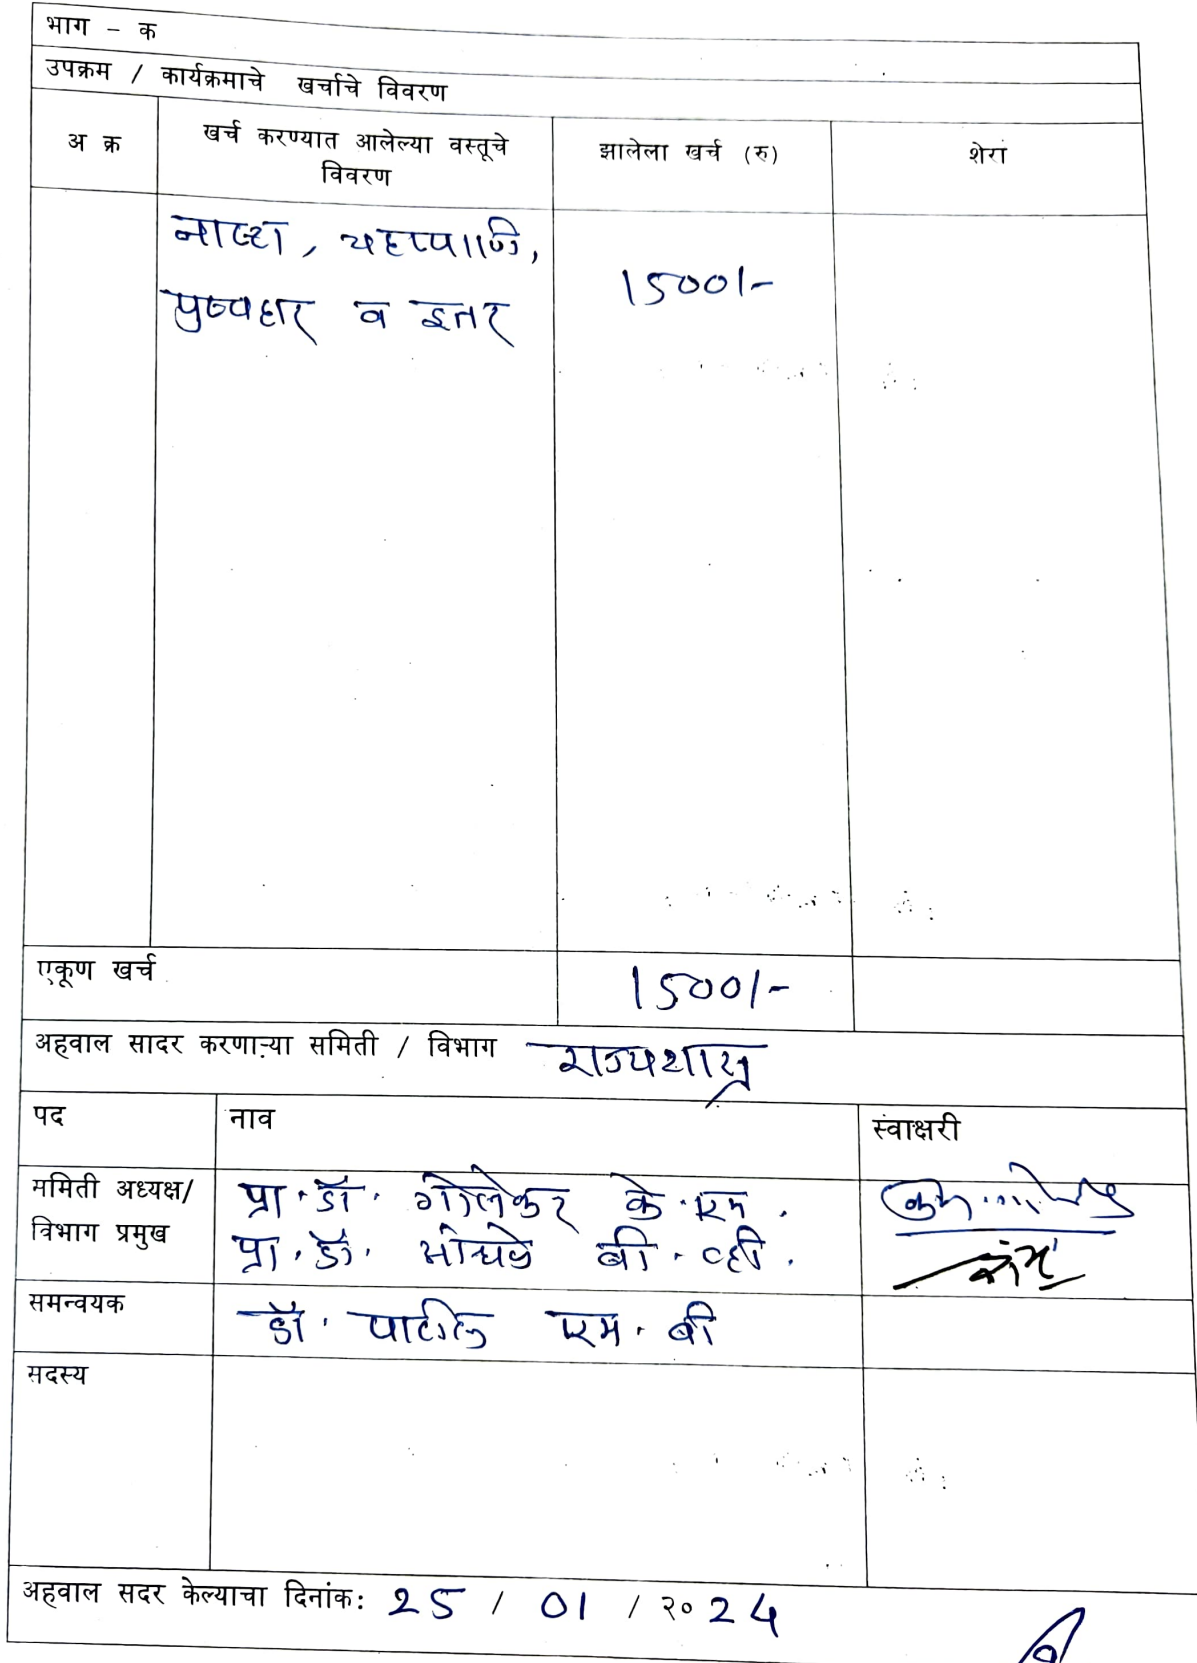 भाग - क
उपक्रम / कार्यक्रमाचे खर्चाचे विवरण
अ क्र
खर्च करण्यात आलेल्या वस्तूचे
विवरण
झालेला खर्च (रु)
शेरा
नाष्टा, चहापाणी,
पुष्पहार व इतर
1500/-
एकूण खर्च
1500/-
अहवाल सादर करणाऱ्या समिती / विभाग राज्यशास्त्र
पद
नाव
स्वाक्षरी
ममिती अध्यक्ष/
विभाग प्रमुख
प्रा. डॉ. गोलेकर के. एम.
प्रा. डॉ. बी. व्ही.
समन्वयक
डॉ. पाटील एम. बी
सदस्य
अहवाल सदर केल्याचा दिनांक: 25 / 01 / २० 24